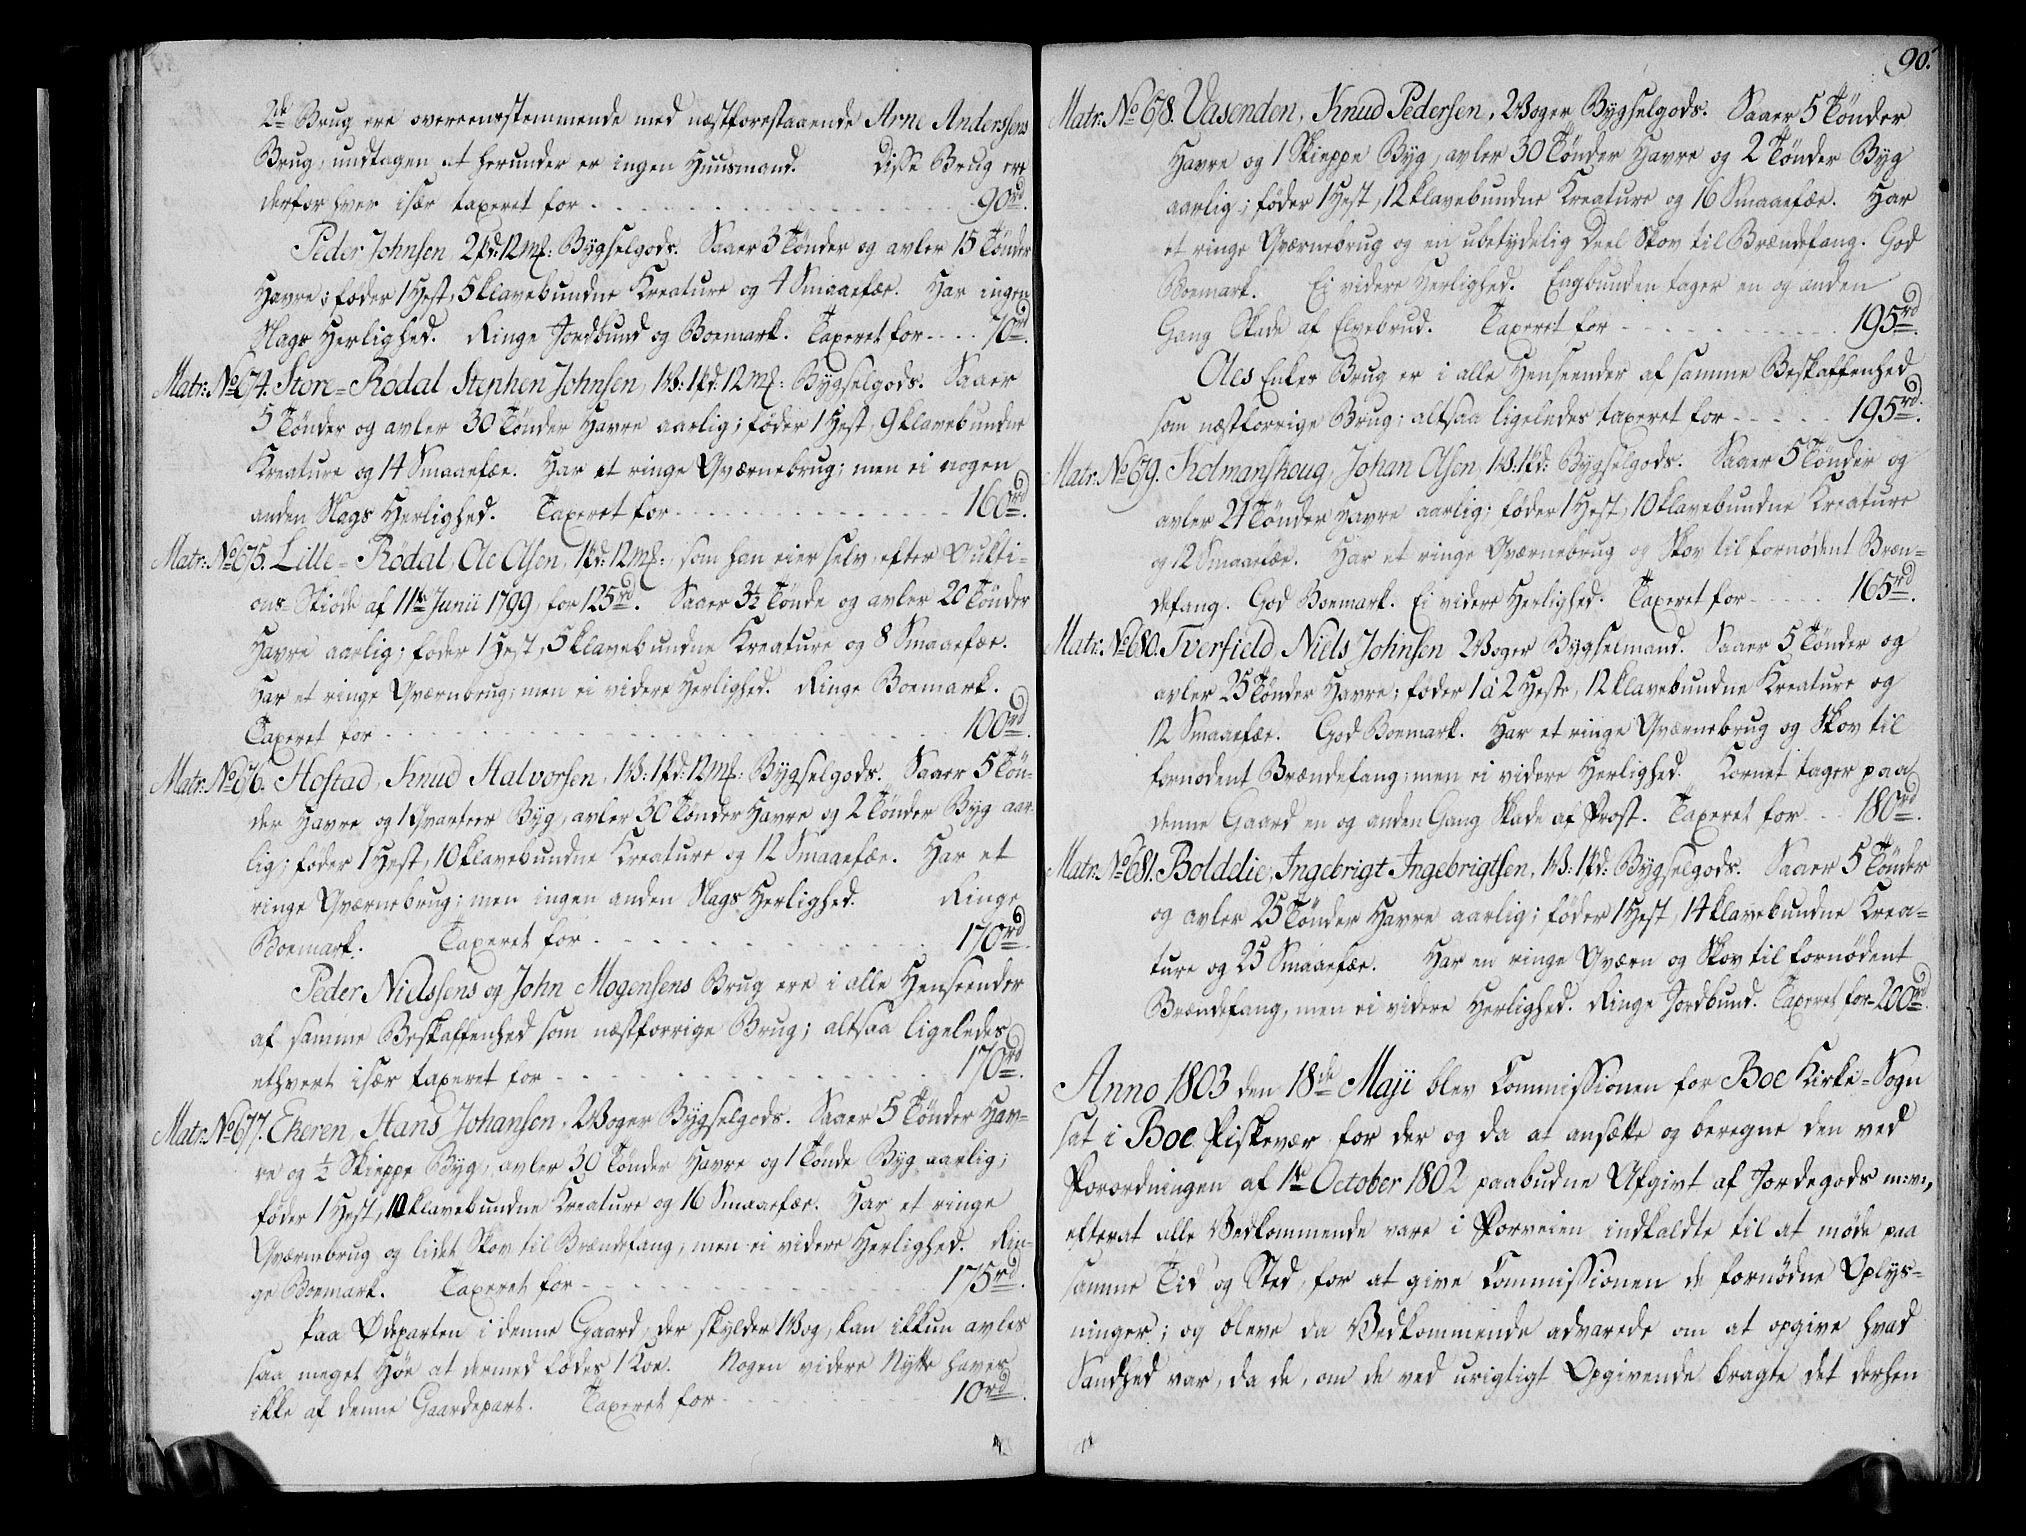 2de Brug ere overeensstemmende med næstforestaaende Arne Anderssens
Brug, undtagen at herunder er ingen Huusmand. Disse Brug ere
derfor hver især taxeret for - - - 90rd.
Peder Johnsen, 2pd: 12mk: Bygselgods. Saaer 3 Tønder og avler 15 Tønder
Havre; føder 1 Hest, 5 klavebundne Kreature og 4 Smaaefæe. Har ingen
Slags Herlighed. Ringe Jordbund og Boemark. Taxeret for - - - 70rd.
Matr: No 674. Store-Rødal, Stephen Johnsen, 1V: 1pd: 12mk: Bygselgods. Saaer
5 Tønder og avler 30 Tønder Havre aarlig; føder 1 Hest, 9 klavebundne
Kreature og 14 Smaaefæe. Har et ringe Qværnebrug; men ei nogen
anden Slags Herlighed. Taxeret for - - - 160rd.
Matr: No 675. Lille-Rødal, Ole Olsen, 1pd: 12mk:, som han eier selv, efter Aukti-
ons-Skiøde af 11te Junii 1799, for 125rd. Saaer 3½ Tønde og avler 20 Tønder
Havre aarlig; føder 1 Hest, 5 klavebundne Kreature og 8 Smaaefæe.
Har et ringe Qværnbrug; men ei videre Herlighed. Ringe Boemark.
Taxeret for - - - 100rd.
Matr: No 676. Hostad, Knud Halvorsen, 1V: 1pd: 12mk: Bygselgods. Saaer 5 Tøn-
der Havre og 1 Qvarteer Byg, avler 30 Tønder Havre og 2 Tønder Byg aar-
lig; føder 1 Hest, 10 klavebundne Kreature og 12 Smaaefæe. Har et
ringe Qværnebrug; men ingen anden Slags Herlighed. Ringe
Boemark. Taxeret for - - - 170rd.
Peder Nielssens og John Mogensens Brug ere i alle Henseender
af samme Beskaffenhed som næstforrige Brug; altsaa ligeledes
ethvert især taxeret for - - - 170rd.
Matr: No 677. Ekeren, Hans Johansen, 2 Voger Bygselgods. Saaer 5 Tønder Hav-
re og ½ Skieppe Byg, avler 30 Tønder Havre og 1 Tønde Byg aarlig;
føder 1 Hest, 10 klavebundne Kreature og 16 Smaaefæe. Har et ringe
Qværnebrug og lidet Skov til Brændefang, men ei videre Herlighed. Rin-
ge Boemark. Taxeret for - - - 175rd.
Paa Ødeparten i denne Gaard, der skylder 1 Vog, kan ikkun avles
saa meget Høe at dermed fødes 1 Koe. Nogen videre Nytte haves
ikke af denne Gaardepart. Taxeret for - - - 10rd.
90.
Matr: No 678. Vasenden, Knud Pedersen, 2 Voger Bygselgods. Saaer 5 Tønder
Havre og 1 Skieppe Byg, avler 30 Tønder Havre og 2 Tønder Byg
aarlig; føder 1 Hest, 12 klavebundne Kreature og 16 Smaaefæe. Har
et ringe Qværnebrug og en ubetydelig Deel Skov til Brændefang. God
Boemark. Ei videre Herlighed. Engbunden tager en og anden
Gang Skade af Elvebrud. Taxeret for - - - 195rd.
Oles Enkes Brug er i alle Henseender af samme Beskaffenhed
som næstforrige Brug; altsaa ligeledes taxeret for - - - 195rd.
Matr: No 679. Holmanskoug, Johan Olsen, 1V: 1pd: Bygselgods. Saaer 5 Tønder og
avler 21 Tønder Havre aarlig; føder 1 Hest, 10 klavebundne Kreature
og 12 Smaaefæe. Har et ringe Qværnebrug og Skov til fornødent Bræn-
defang. God Boemark. Ei videre Herlighed. Taxeret for - - - 165rd.
Matr: No 680. Tverfield, Niels Johnsen 2 Voger Bygselmand. Saaer 5 Tønder og
avler 25 Tønder Havre; føder 1 à 2 Heste, 12 klavebundne Kreature og
12 Smaaefæe. God Boemark. Har et ringe Qværnebrug og Skov til
fornødent Brændefang; men ei videre Herlighed. Kornet tager paa
denne Gaard en og anden Gang Skade af Frost. Taxeret for - - - 180rd.
Matr: No 681. Bolddlie, Ingebrigt Ingebrigtsen, 1V: 1pd: Bygselgods. Saaer 5 Tønder
og avler 25 Tønder Havre aarlig; føder 1 Hest, 14 klavebundne Krea-
ture og 25 Smaaefæe. Har en ringe Qværn og Skov til fornødent
Brændefang, men ei videre Herlighed. Ringe Jordbund. Taxeret for - 200rd.
Anno 1803 den 18de Maji blev Commissionen for Boe Kirke-Sogn
sat i Boe Fiskevær for der og da at ansætte og beregne den ved
Forordningen af 1te October 1802 paabudne Afgivt af Jordegods m: v:,
efterat alle Vedkommende vare i Forveien indkaldte til at møde paa
samme Tid og Sted, for at give Commissionen de fornødne Oplys-
ninger; og bleve da Vedkommende advarede om at opgive hvad
Sandhed var, da de, om de ved urigtigt Opgivende bragte det derhen